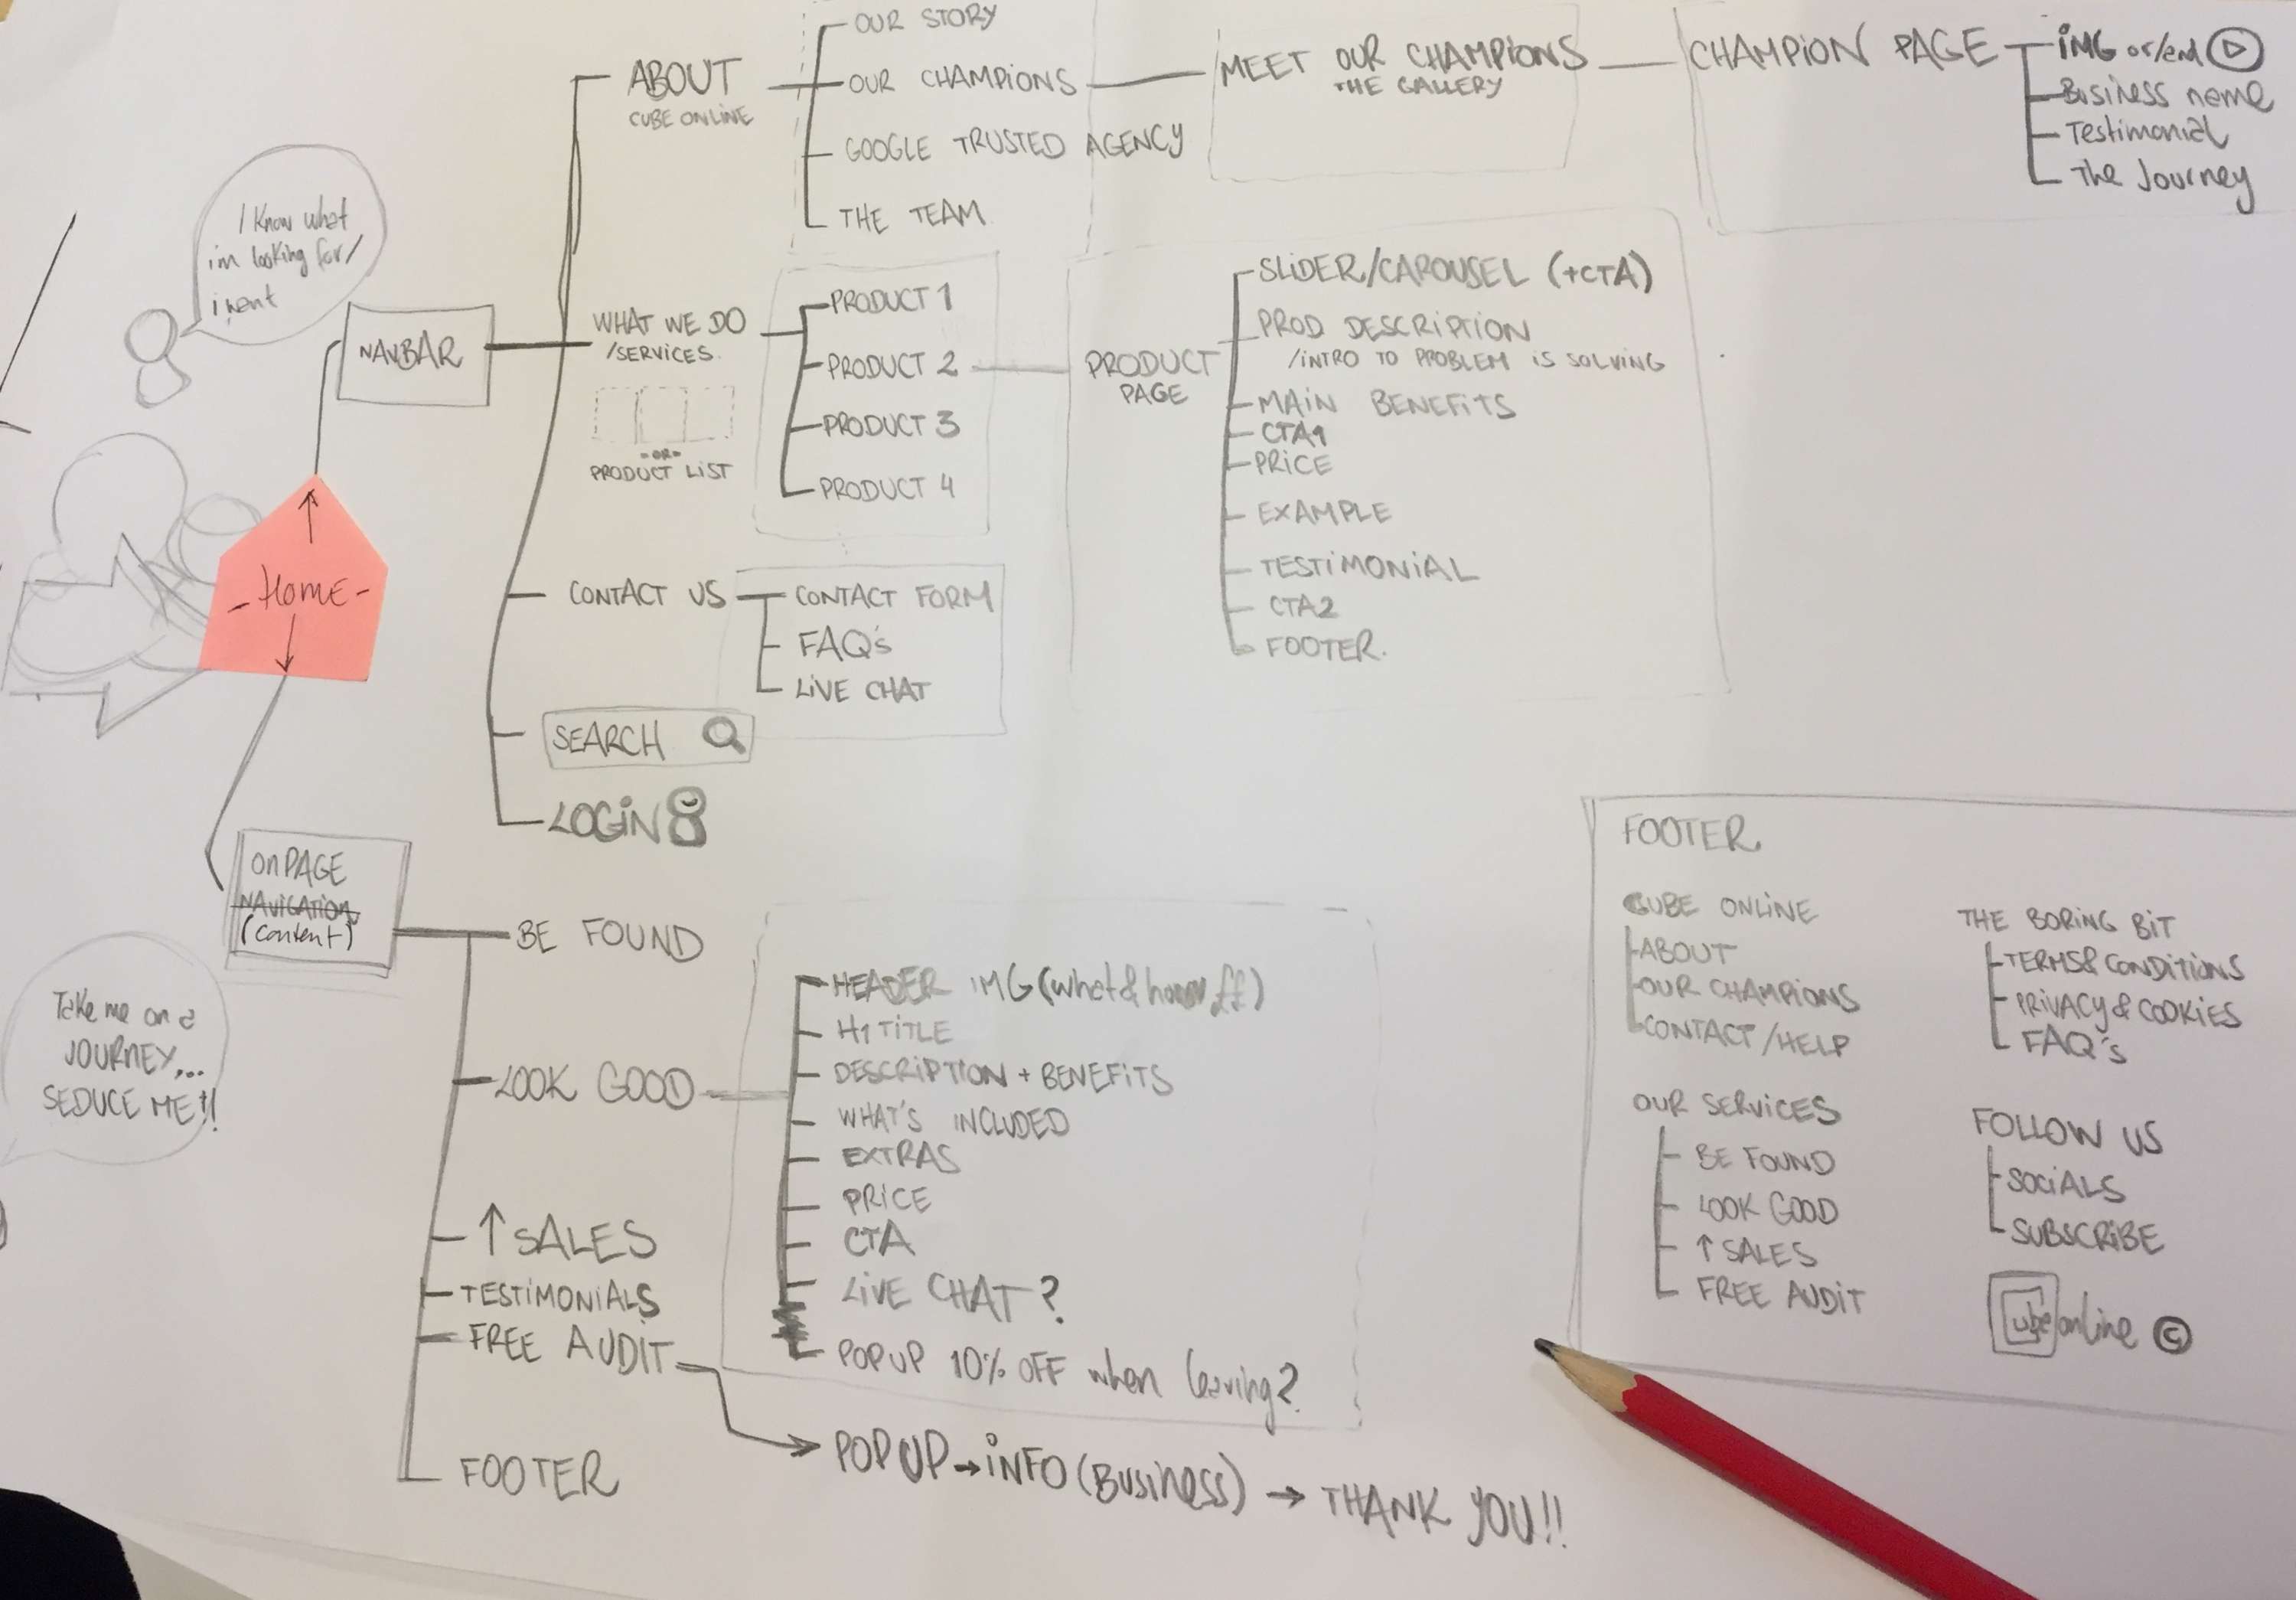 ABOUT
CUBE ONLINE
OUR STORY
OUR CHAMPIONS
GOOGLE TRUSTED AGENCY
THE TEAM
MEET OUR CHAMPIONS
THE GALLERY
CHAMPION PAGE
iMG or/end
Business name
Testimonial
The Journey
I Know what
i'm looking for/
i went
NAVBAR
WHAT WE DO
/SERVICES
-OR-
PRODUCT LIST
PRODUCT 1
PRODUCT 2
PRODUCT 3
PRODUCT 4
PRODUCT
PAGE
SLIDER/CAROUSEL (+CTA)
PROD DESCRIPTION
/INTRO TO PROBLEM IS SOLVING
MAIN BENEFITS
CTA1
PRICE
EXAMPLE
TESTIMONIAL
CTA2
FOOTER.
- Home -
CONTACT US
CONTACT FORM
FAQ's
LIVE CHAT
SEARCH
LOGIN
On PAGE
NAVIGATION
(content)
Take me on a
JOURNEY,...
SEDUCE ME!!
BE FOUND
LOOK GOOD
↑ SALES
TESTIMONIALS
FREE AUDIT
FOOTER
HEADER IMG (what & how ff)
H1 TITLE
DESCRIPTION + BENEFITS
WHAT'S INCLUDED
EXTRAS
PRICE
CTA
LIVE CHAT?
POP UP 10% OFF when leaving?
POP UP → INFO (Business) → THANK YOU!!
FOOTER
CUBE ONLINE
ABOUT
OUR CHAMPIONS
CONTACT/HELP
OUR SERVICES
BE FOUND
LOOK GOOD
↑ SALES
FREE AUDIT
THE BORING BIT
TERMS & CONDITIONS
PRIVACY & COOKIES
FAQ's
FOLLOW US
SOCIALS
SUBSCRIBE
Cube online ©